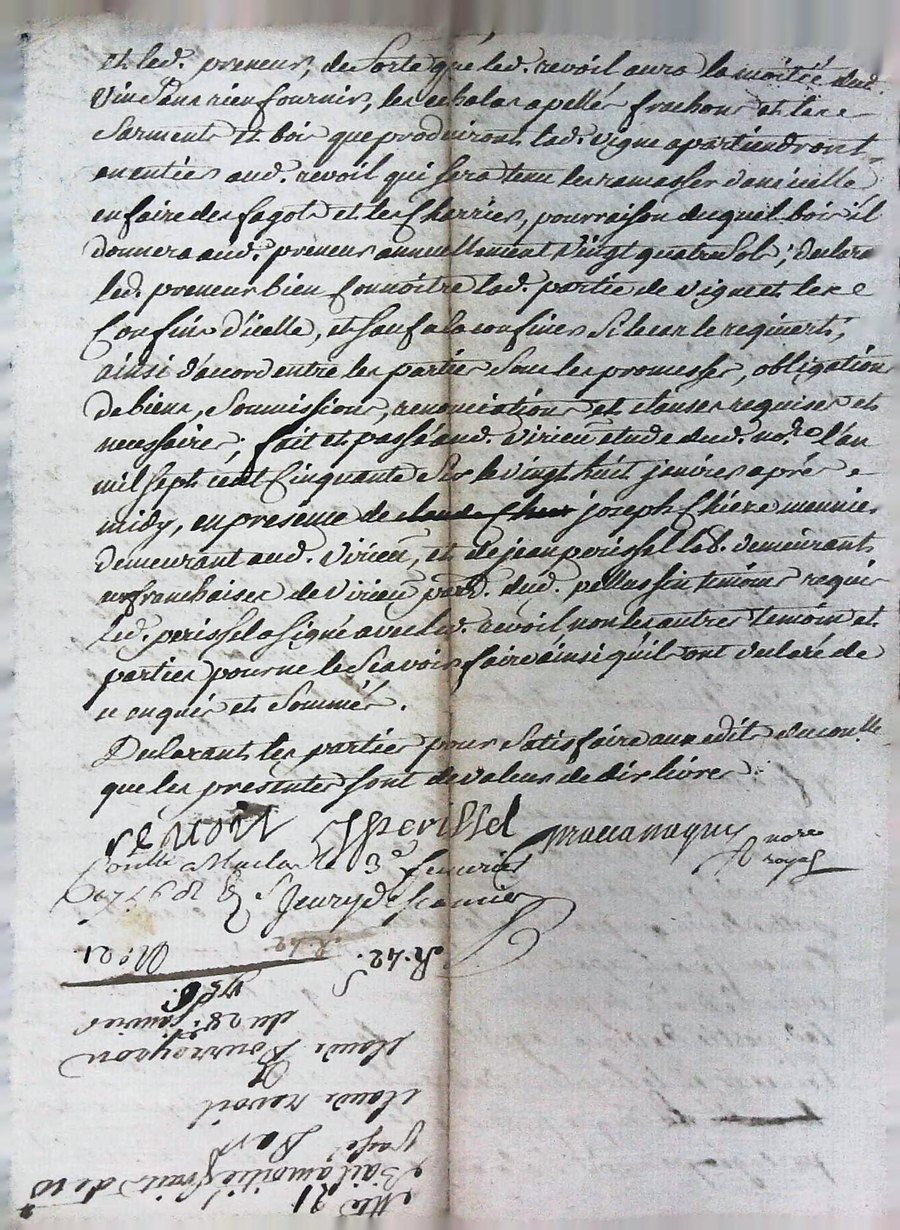 et led. preneur, de sorte que led. revoil aura la moitié dud.
vin sans rien fournir, les echalas apellés frachons et les
sarments et bois que produiront lad. vigne apartiendront
en entier aud. revoil qui sera tenu les ramasser dans icelle
en faire des fagots et les Cherrier, pour raison duquel bois il
donnera aud. preneur annuellement vingt quatre sols; declare
led. preneur bien Connoitre lad. partie de vigne et les
Confins d'icelle, et sauf a la confiner si le cas le requiert,
ainsi d'acord entre les parties sous les promesses, obligations
de biens, soumissions, renonciations et clauses requises et
necessaires; fait et passé aud. virieu etude dud. nore. l'an
mil sept cent Cinquante six le vingt huit janvier aprés
midy, en presence de claude joseph Chieze meunier
demeurant aud. virieu, et de jean perissel lab. demeurant
en franchises de virieu parr. dud. pellussin temoins requis
led. perissel a signé avec led. revoil non les autres temoin et
parties pour ne le scavoir faire ainsi quils ont declaré de
ce enquis et sommés.
Declarant les parties pour satisfaire aux edits du conlle
que les presentes sont de valeur de dix livres
revoil J perissel
nore
royal
Conllé a Maclas le 3e fevrier
R. 42.
No. 21
1756.
du 28e janvier
claude
claude revoil
passé Par
Bail a moitié fruits de 10